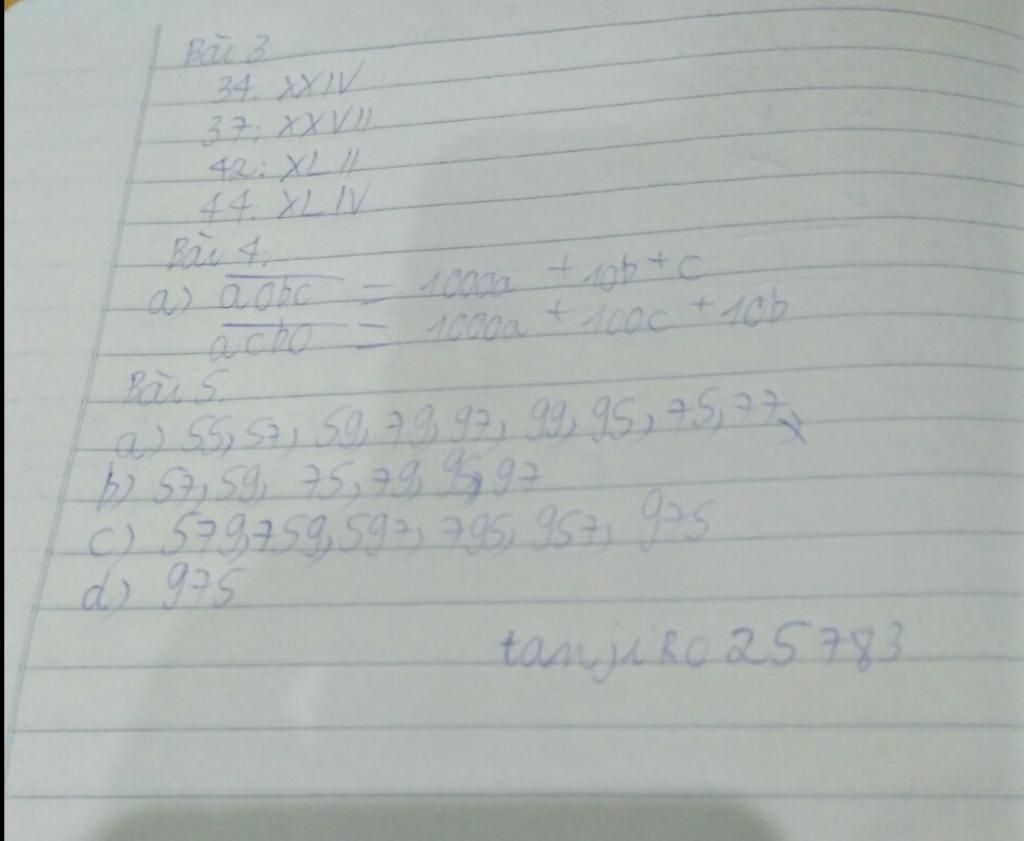 Bài 3.
34. XXIV
37: XXVII
42: XLII
44. XLIV
Bài 4.
a) a0bc = 1000a + 10b + c
acb0 = 1000a + 100c + 10b
Bài 5.
a) 55, 57, 59, 79, 97, 99, 95, 75, 77,
b) 57, 59, 75, 79, 95, 97
c) 579, 759, 597, 795, 957, 975
d) 975
tanjiRo25783